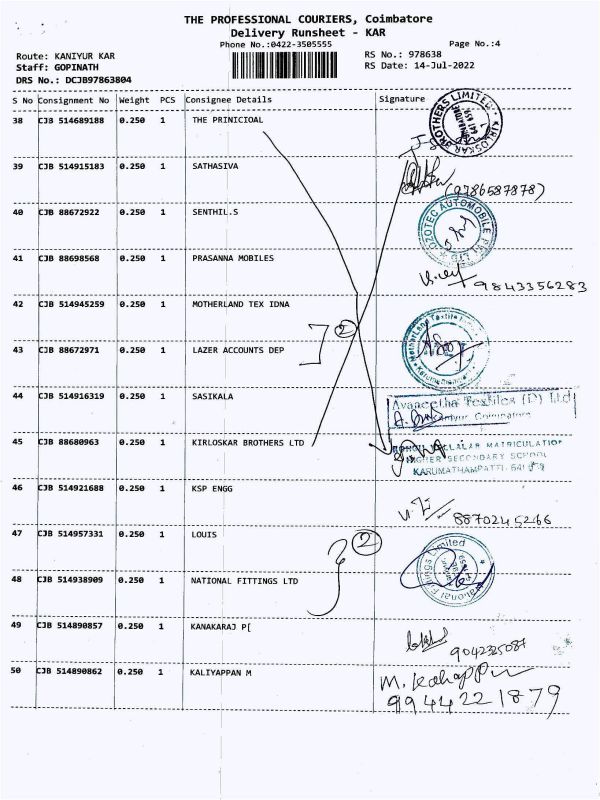 THE PROFESSIONAL COURIERS, Coimbatore
Delivery Runsheet - KAR
Phone No.:0422-3505555 Page No.:4
Route: KANIYUR KAR RS No.: 978638
Staff: GOPINATH RS Date: 14-Jul-2022
DRS No.: DCJB97863804
S No Consignment No Weight PCS Consignee Details Signature
38 CJB 514689188 0.250 1 THE PRINICIOAL
BROTHERS LIMITED KIRLOSKAR
39 CJB 514915183 0.250 1 SATHASIVA
(9786587878)
40 CJB 88672922 0.250 1 SENTHIL.S
OZOTEC AUTOMOBILE
41 CJB 88698568 0.250 1 PRASANNA MOBILES
9843356283
42 CJB 514945259 0.250 1 MOTHERLAND TEX IDNA
2
Motherland Textile
43 CJB 88672971 0.250 1 LAZER ACCOUNTS DEP
44 CJB 514916319 0.250 1 SASIKALA
Avaneetha Textiles (P) Ltd
Coimbatore
45 CJB 88680963 0.250 1 KIRLOSKAR BROTHERS LTD
MATRICULATION
HIGHER SECONDARY SCHOOL
KARUMATHAMPATTI
46 CJB 514921688 0.250 1 KSP ENGG
8870245266
47 CJB 514957331 0.250 1 LOUIS
2
National Fittings Limited
48 CJB 514938909 0.250 1 NATIONAL FITTINGS LTD
49 CJB 514890857 0.250 1 KANAKARAJ P[
9042325087
50 CJB 514890862 0.250 1 KALIYAPPAN M
9944221879